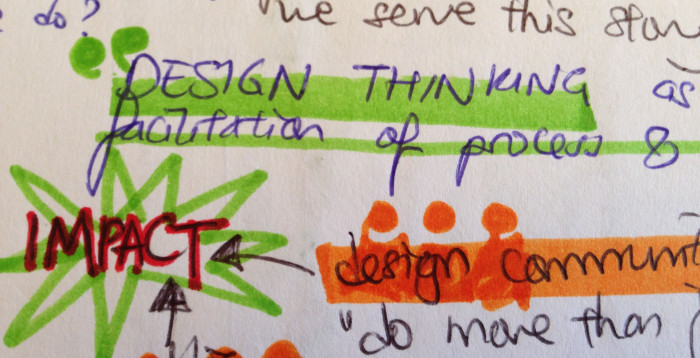 do?
we serve this
DESIGN THINKING as
facilitation of process &
IMPACT
design
"do more than